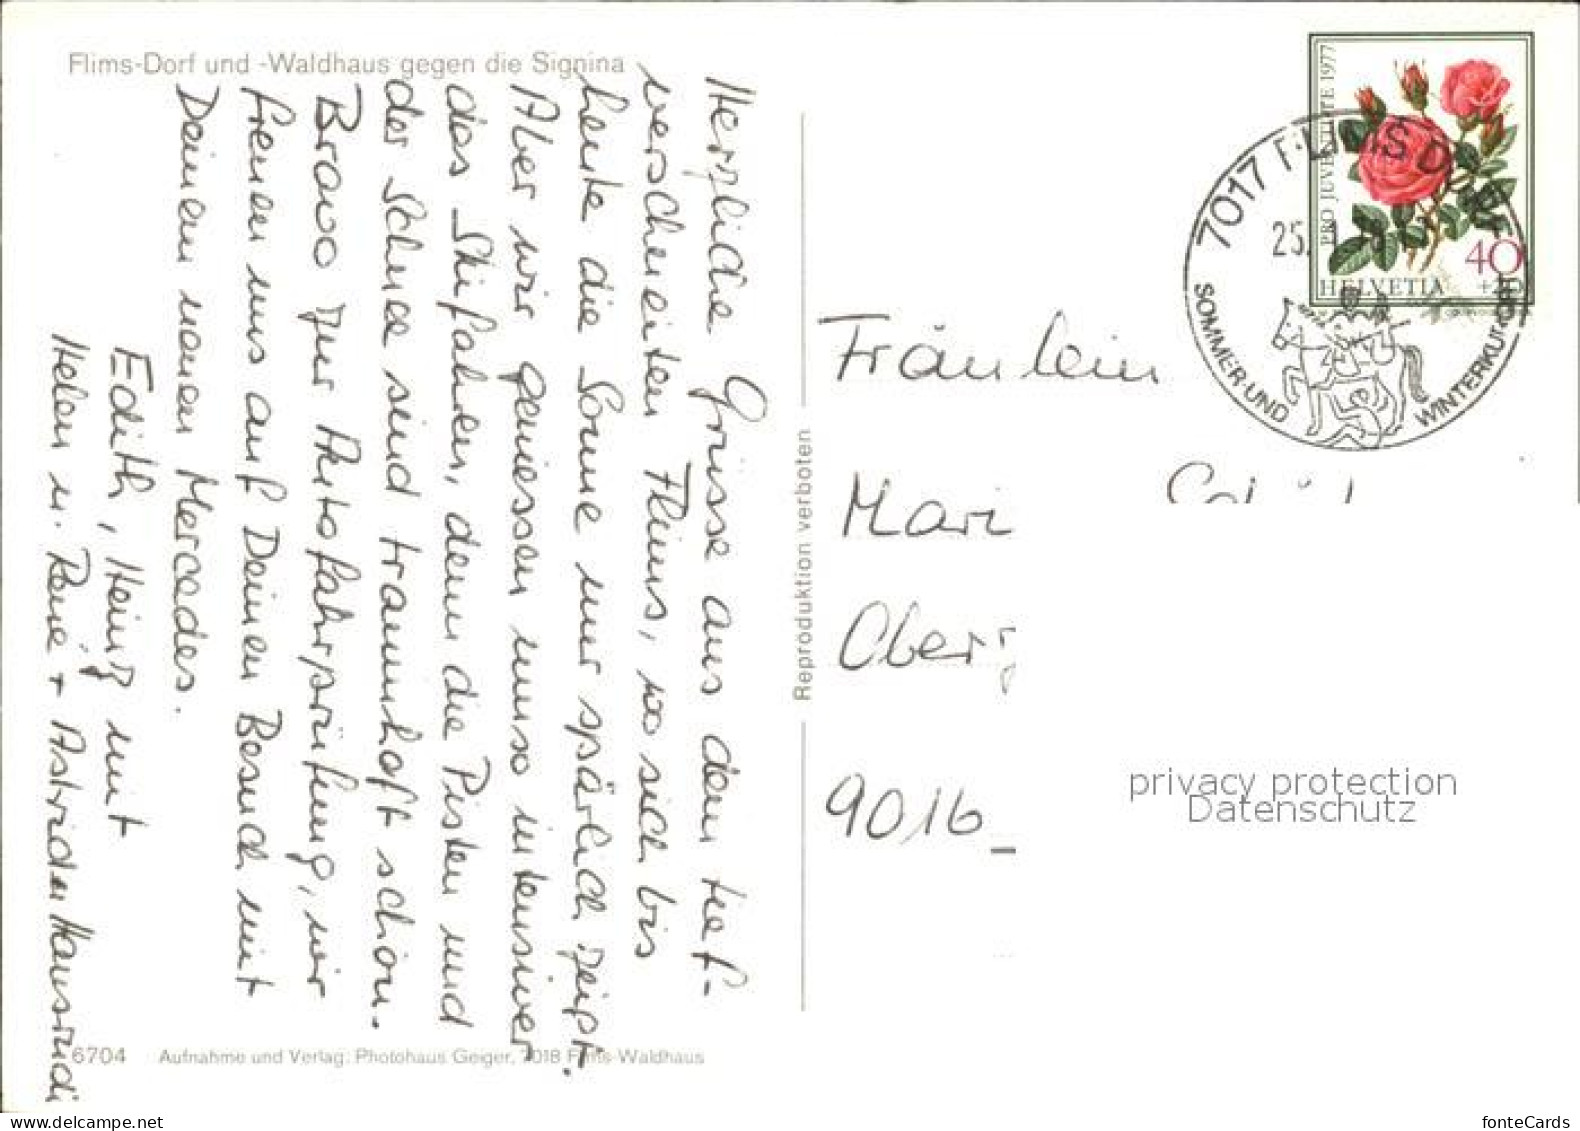 Flims-Dorf und -Waldhaus gegen die Signina
Herzliche Grüsse aus dem tief-
verschneiten Flims, wo sich bis
heute die Sonne nur spärlich zeigt.
Aber wir geniessen umso intensiver
das Skifahren, denn die Pisten und
der Schnee sind traumhaft schön.
Bravo zur Autofahrprüfung, wir
freuen uns auf Deinen Besuch mit
Deinem neuen Mercedes.
Edith, Heinz mit
Helen u. René + Astrid u Hansruedi
6704 Aufnahme und Verlag: Photohaus Geiger, 7018 Flims-Waldhaus
Reproduktion verboten
PRO JUVENTUTE 1977
40
+20
HELVETIA
7017 FLIMS DORF
25.
SOMMER- UND WINTERKURORT
Fräulein
Mari
Ober
9016
privacy protection
Datenschutz
fonteCards